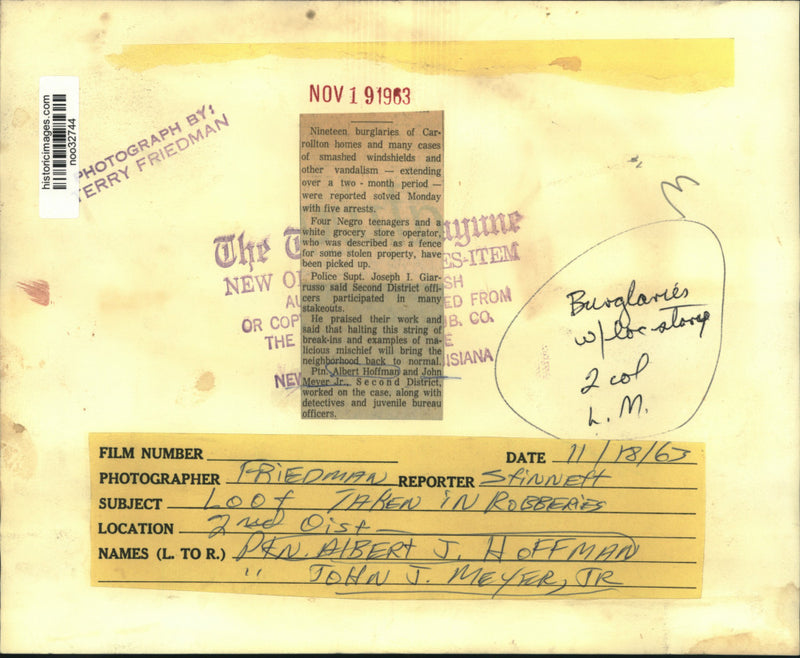 NOV 19 1963
historicimages.com
noo32744
PHOTOGRAPH BY:
TERRY FRIEDMAN
Nineteen burglaries of Car-
rollton homes and many cases
of smashed windshields and
other vandalism — extending
over a two - month period —
were reported solved Monday
with five arrests.
Four Negro teenagers and a
white grocery store operator,
who was described as a fence
for some stolen property, have
been picked up.
Police Supt. Joseph I. Giar-
russo said Second District offi-
cers participated in many
stakeouts.
He praised their work and
said that halting this string of
break-ins and examples of ma-
licious mischief will bring the
neighborhood back to normal.
Ptn. Albert Hoffman and John
Meyer Jr., Second District,
worked on the case, along with
detectives and juvenile bureau
officers.
The T ayune
NEW O ES-ITEM
AU SH
OR COP ED FROM
THE B. CO.
NEW ISIANA
Burglaries
w/ loc story
2 col
L. M.
FILM NUMBER DATE 11/18/63
PHOTOGRAPHER FRIEDMAN REPORTER Stinnett
SUBJECT LOOT TAKEN IN ROBBERIES
LOCATION 2nd Dist
NAMES (L. TO R.) PTN. ALBERT J. HOFFMAN
" JOHN J. MEYER, JR